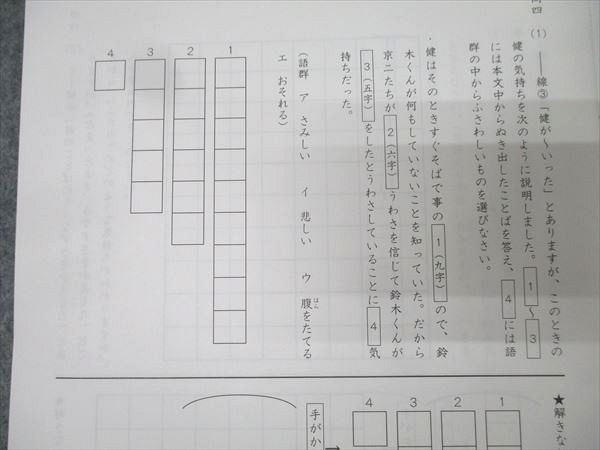 問四 (1) ――線③「健が〜いった」とありますが、このときの
健の気持ちを次のように説明しました。1〜3
には本文中からぬき出したことばを答え、4には語
群の中からふさわしいものを選びなさい。
・健はそのときすぐそばで事の1(九字)ので、鈴
木くんが何もしていないことを知っていた。だから
京二たちが2(六字)うわさを信じて鈴木くんが
3(五字)をしたとうわさしていることに4気
持ちだった。
(語群 ア さみしい イ 悲しい ウ 腹をたてる
はら
エ おそれる)
1
2
3
4
★解きな
1
2
3
4
手がか